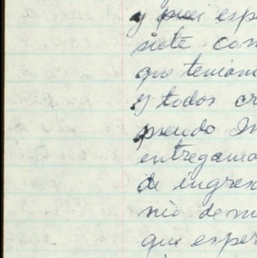 y pues esp
siete con
que teniam
y todos cr
puendo In
entregamo
de ingres
nio de mi
que esper